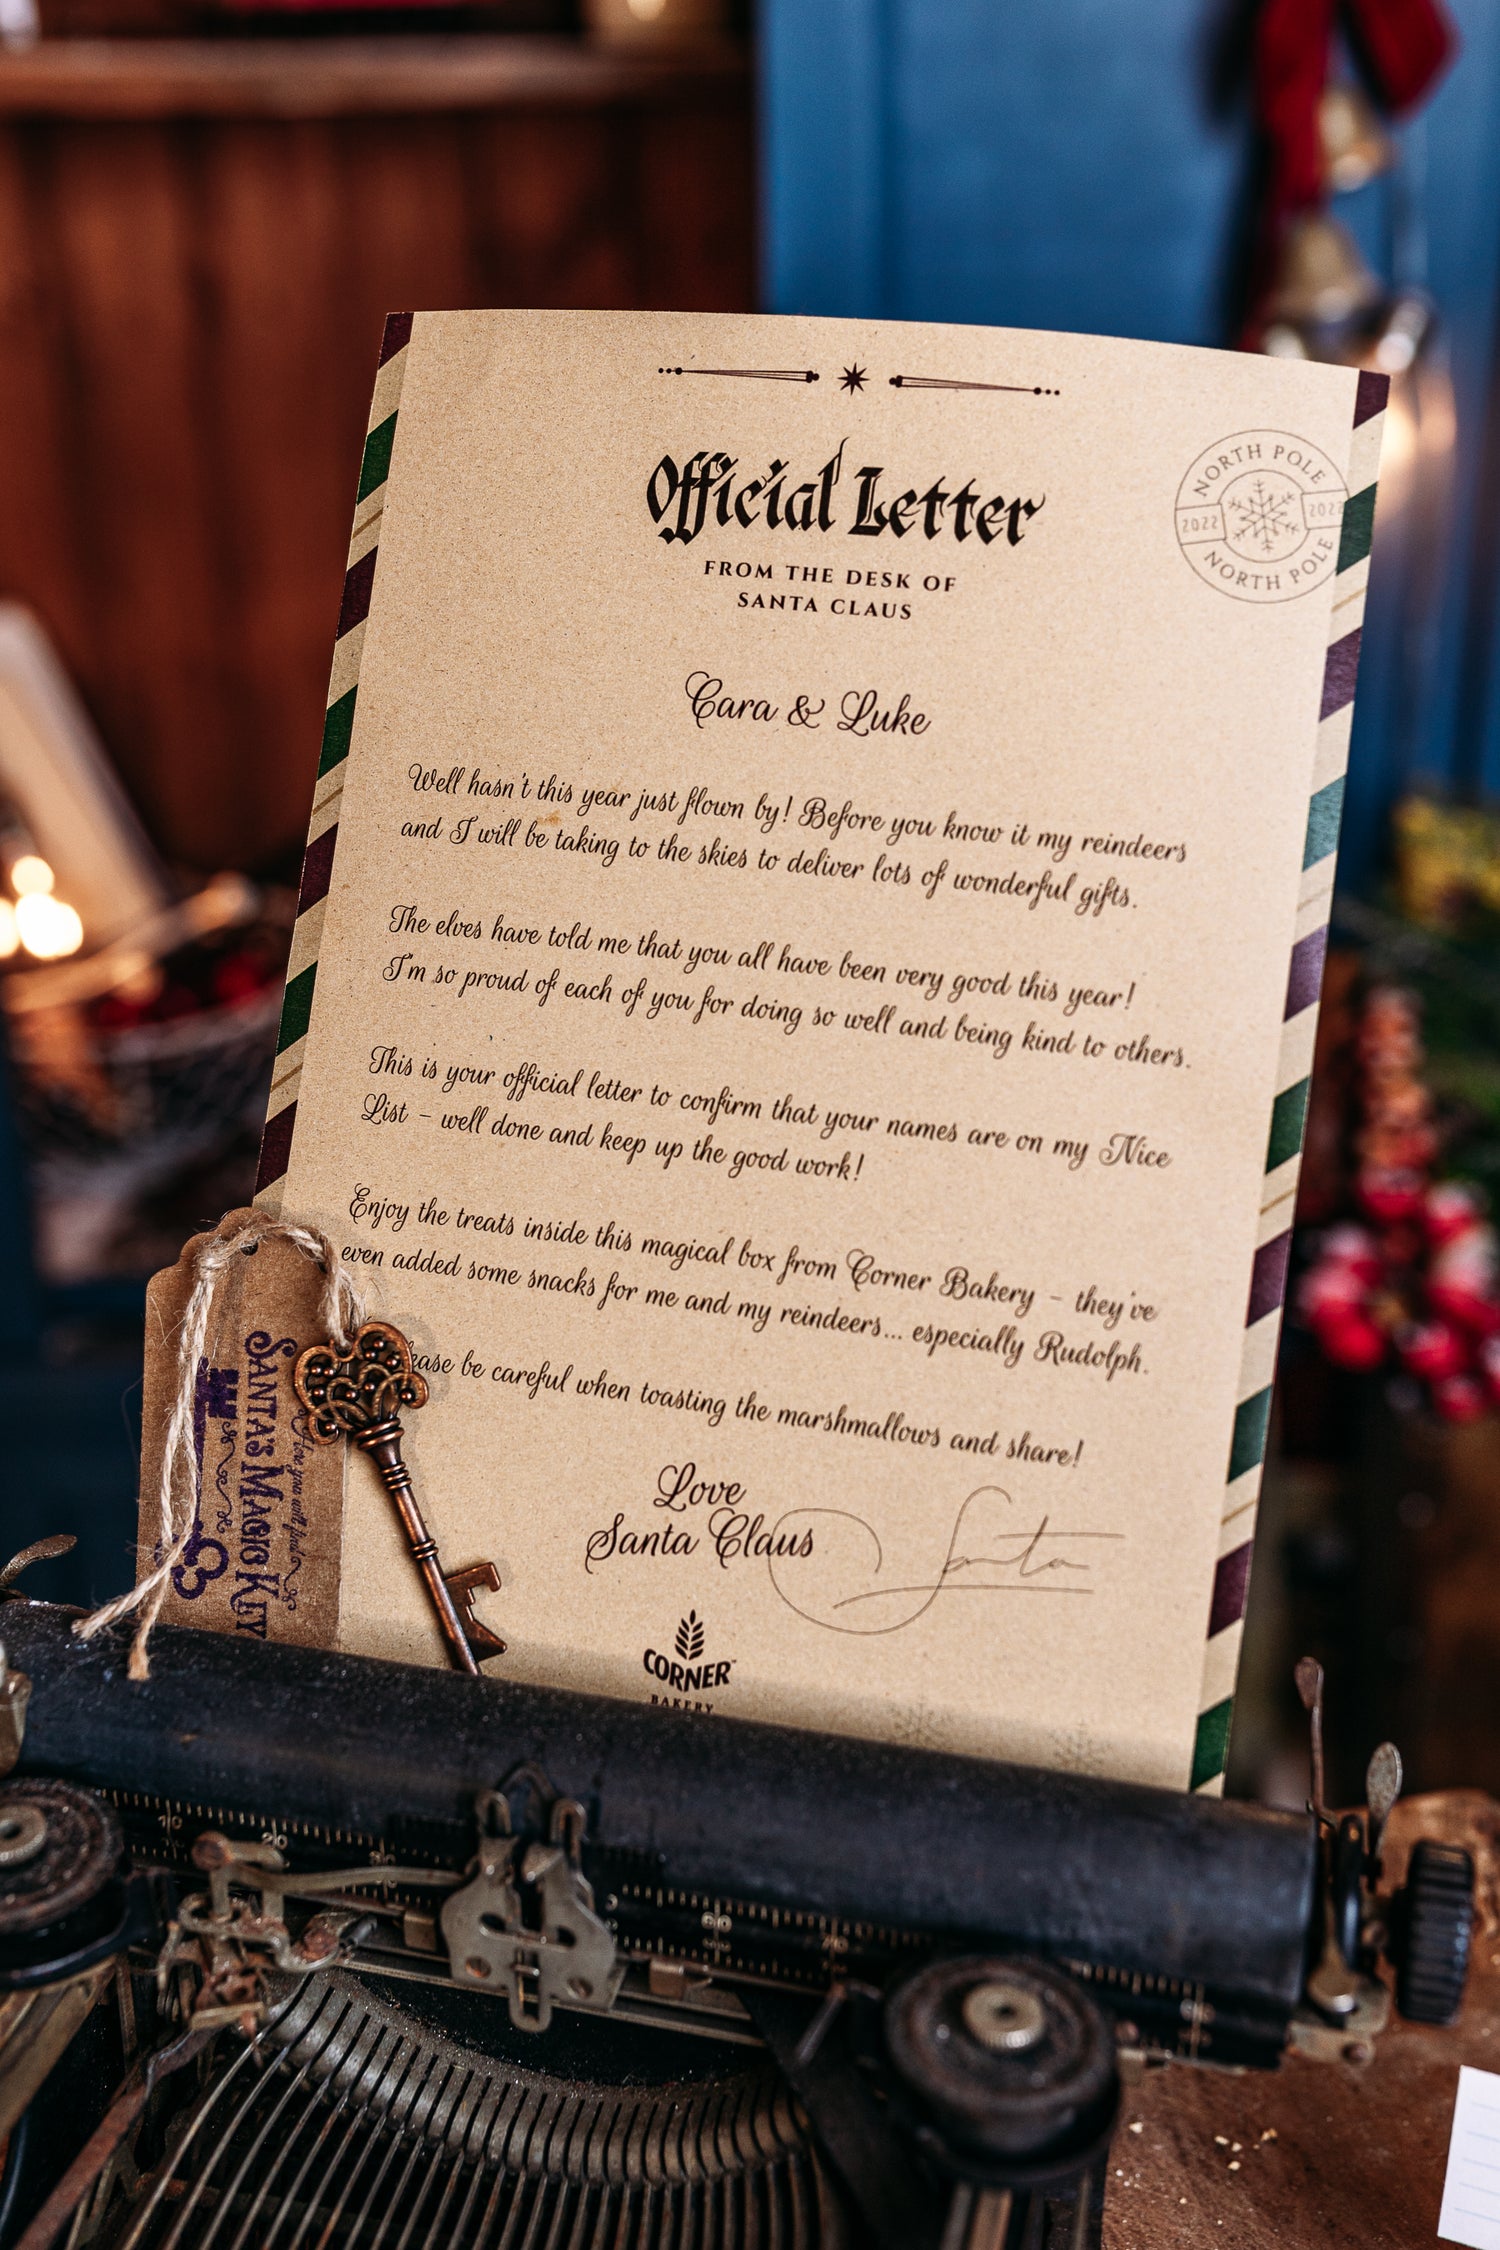 Official Letter
FROM THE DESK OF
SANTA CLAUS
NORTH POLE
2022 2022
NORTH POLE
Cara & Luke
Well hasn't this year just flown by! Before you know it my reindeers
and I will be taking to the skies to deliver lots of wonderful gifts.
The elves have told me that you all have been very good this year!
I'm so proud of each of you for doing so well and being kind to others.
This is your official letter to confirm that your names are on my Nice
List – well done and keep up the good work!
Enjoy the treats inside this magical box from Corner Bakery – they've
even added some snacks for me and my reindeers... especially Rudolph.
be careful when toasting the marshmallows and share!
Love
Santa Claus
Santa
CORNER
BAKERY
SANTA'S MAGIC KEY
you will find
20